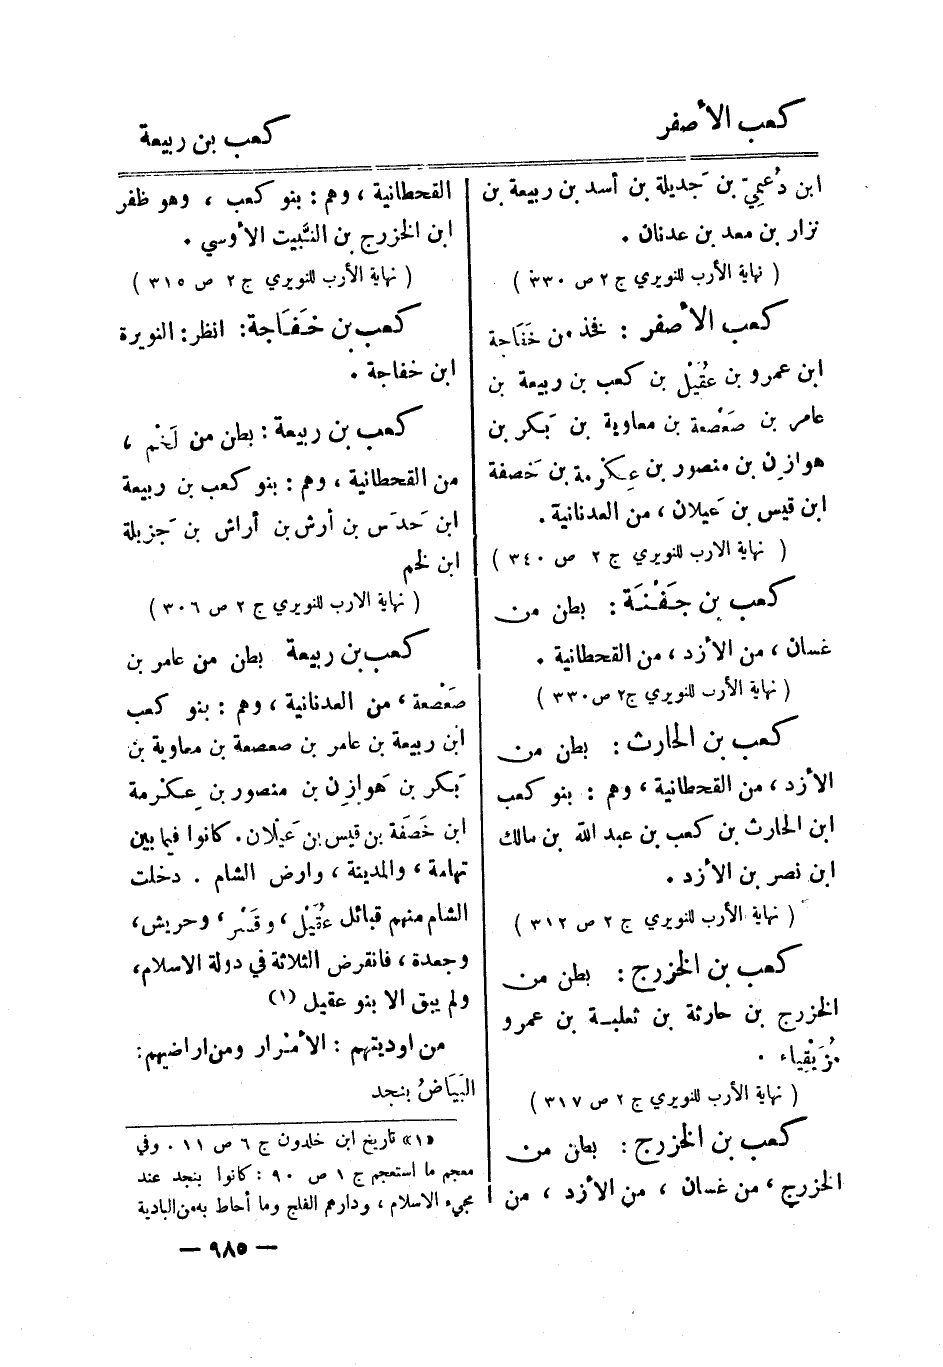 كعب الأصفر
كعب بن ربيعة
ابن دُعمِيّ بن جَديلة بن أسد بن ربيعة بن
نزار بن معد بن عدنان .
( نهاية الأرب للنويري ج ٢ ص ٣٣٠ )
كعب الأصفر : فخذ من خَفَاجة
ابن عمرو بن عُقَيْل بن كعب بن ربيعة بن
عامر بن صَعْصعة بن معاوية بن بَكر بن
هوازِن بن منصور بن عِكْرمة بن خَصفة
ابن قيس بن عَيلان ، من العدنانية .
( نهاية الارب للنويري ج ٢ ص ٣٤٠ )
كعب بن جَفْنَة : بطن من
غسان ، من الأزد ، من القحطانية .
( نهاية الأرب للنويري ج٢ ص ٣٣٠ )
كعب بن الحارث : بطن من
الأزد ، من القحطانية ، وهم : بنو كعب
ابن الحارث بن كعب بن عبد الله بن مالك
ابن نصر بن الأزد .
( نهاية الأرب للنويري ج ٢ ص ٣١٢ )
كعب بن الخزرج : بطن من
الخزرج بن حارثة بن ثعلبة بن عمرو
مُزَيْقِياء .
( نهاية الأرب للنويري ج ٢ ص ٣١٧ )
كعب بن الخزرج : بطن من
الخزرج ، من غسان ، من الأزد ، من
القحطانية ، وهم : بنو كعب ، وهو ظفر
ابن الخزرج بن النَّبيت الأوسي .
( نهاية الأرب للنويري ج ٢ ص ٣١٥ )
كعب بن خَفَاجة : انظر : النويرة
ابن خفاجة .
كعب بن ربيعة : بطن من لَخْم ،
من القحطانية ، وهم : بنو كعب بن ربيعة
ابن حَدَس بن أرش بن أراش بن جَزيلة
ابن لخم
( نهاية الارب للنويري ج ٢ ص ٣٠٦ )
كعب بن ربيعة بطن من عامر بن
صَعْصعة ، من العدنانية ، وهم : بنو كعب
ابن ربيعة بن عامر بن صعصعة بن معاوية بن
بَكر بن هَوازِن بن منصور بن عِكرمة
ابن خَصَفة بن قيس بن عَيْلان . كانوا فيما بين
تهامة ، والمدينة ، وارض الشام . دخلت
الشام منهم قبائل عُقَيْل ، وقَسْر ، وحريش ،
وجعدة ، فانقرض الثلاثة في دولة الاسلام ،
ولم يبق الا بنو عقيل (١)
من اوديتهم : الأمْرار ومن اراضيهم :
البَيَاضُ بنجد
«١» تاريخ ابن خلدون ج ٦ ص ١١ . وفي
معجم ما استعجم ج ١ ص ٩٠ : كانوا بنجد عند
مجيء الاسلام ، ودارهم الفلج وما أحاط به من البادية
— ٩٨٥ —